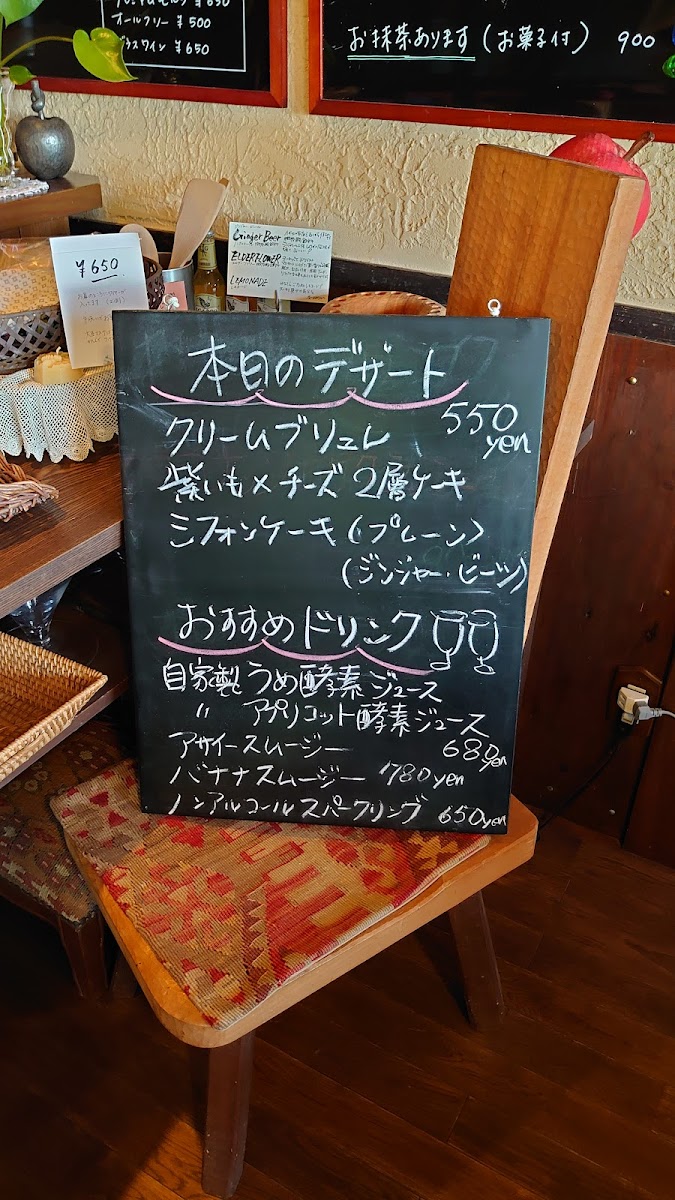 オールフリー ¥500
グラスワイン ¥650
お抹茶あります(お菓子付) 900
¥650
Ginger Beer
ELDERFLOWER
LEMONADE
本日のデザート
クリームブリュレ 550yen
紫いも×チーズ 2層ケーキ
シフォンケーキ(プレーン)
(ジンジャー・ビーツ)
おすすめドリンク
自家製 うめ酵素ジュース
〃 アプリコット酵素ジュース
アサイースムージー 680yen
バナナスムージー 780yen
ノンアルコールスパークリング 650yen